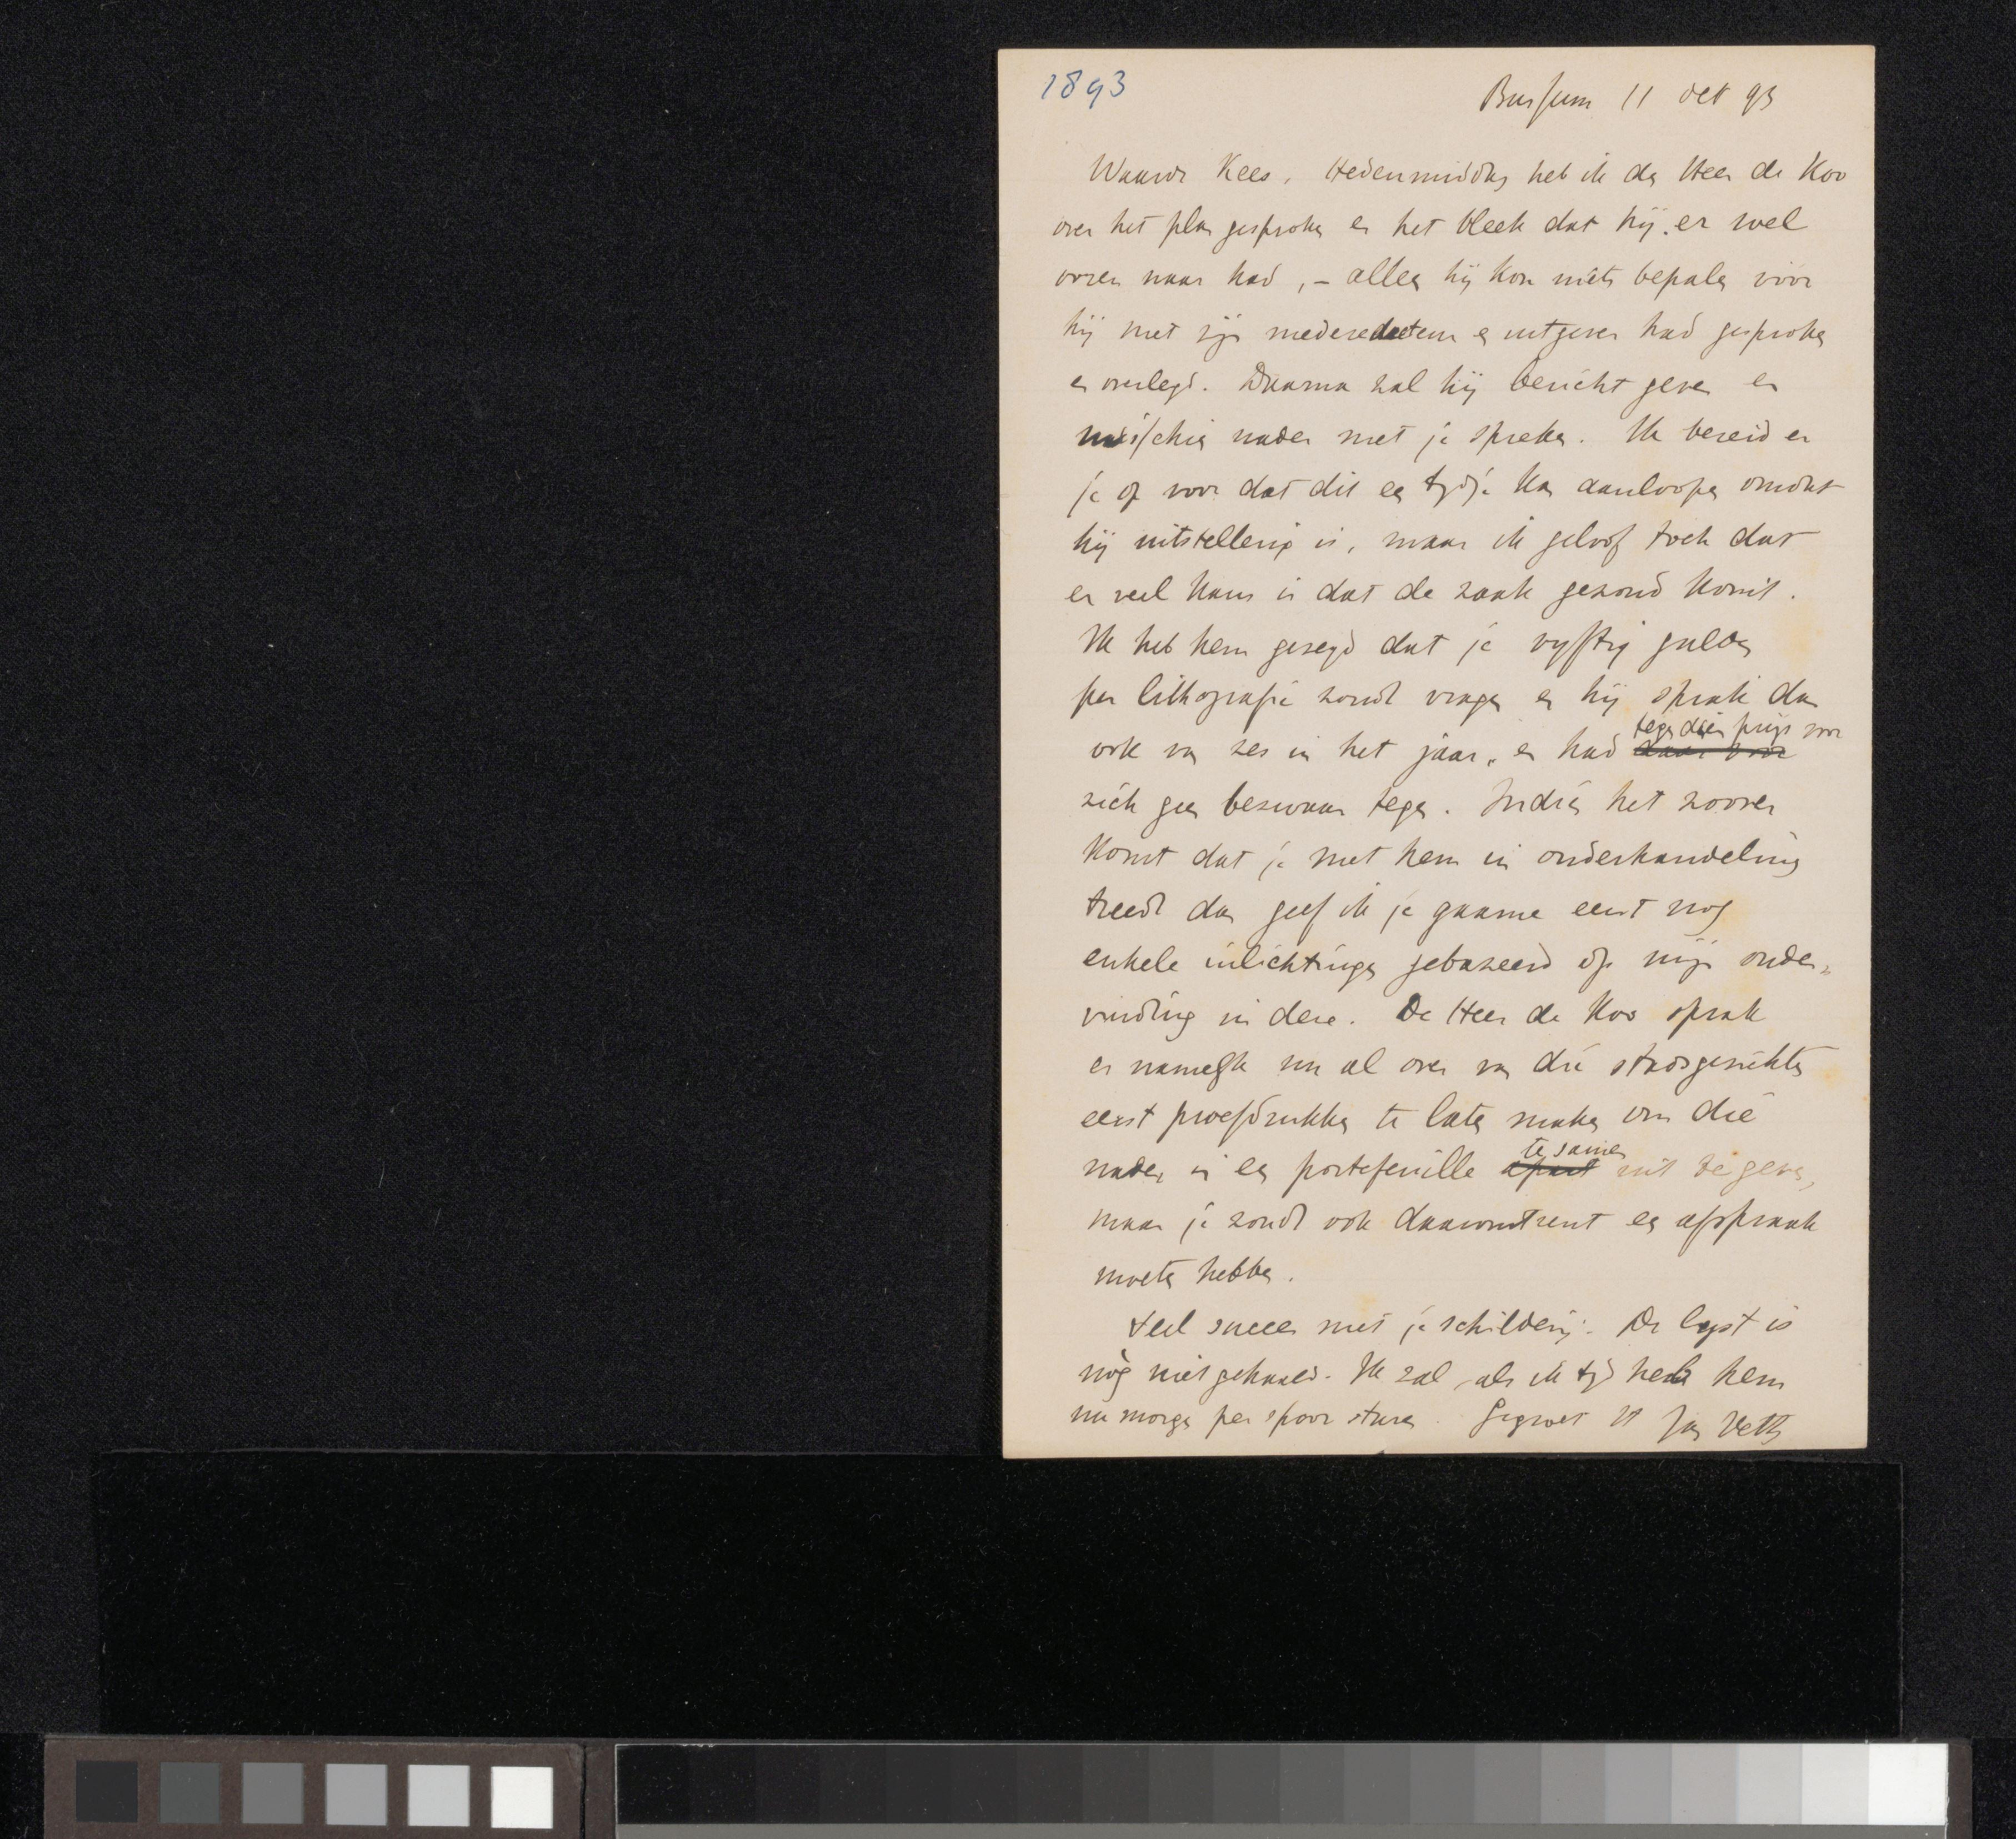 1893
Bussum 11 Oct 93
Waarde Kees, Hedenmiddag heb ik den Heer de Koo
over het plan gesproken en het bleek dat hij er wel
ooren naar had, – alleen hij kon niets bepalen vóór
hij met zijn mederedacteur en uitgever had gesproken
en overlegd. Daarna zal hij bericht geven en
misschien nader met je spreken. Ik bereid er
je op voor dat dit een tydje kan aanloopen omdat
hij uitstellerig is, maar ik geloof toch dat
er veel kans is dat de zaak gezond komt.
Ik heb hem gezegd dat je vyftig gulden
per lithografie zoudt vragen en hij sprak dan
ook van zes in het jaar, en had daar voor tegen dien prijs voor
zich geen bezwaar tegen. Indien het zoover
komt dat je met hem in onderhandeling
treedt dan geef ik je gaarne eerst nog
enkele inlichtingen gebaseerd op mijn onder„
vinding in deze. De Heer de Koo sprak
er namelijk nu al over van die stadsgezichten
eerst proefdrukken te laten maken om die
nader in een portefeuille apart te samen uit te geven,
maar je zoudt ook daaromtrent een afspraak
moeten hebben.
Veel succes met je schilderij. De lyst is
nòg niet gehaald. Ik zal als ik tyd heb hem
nu morgen per spoor sturen. Gegroet tt Jan Veth